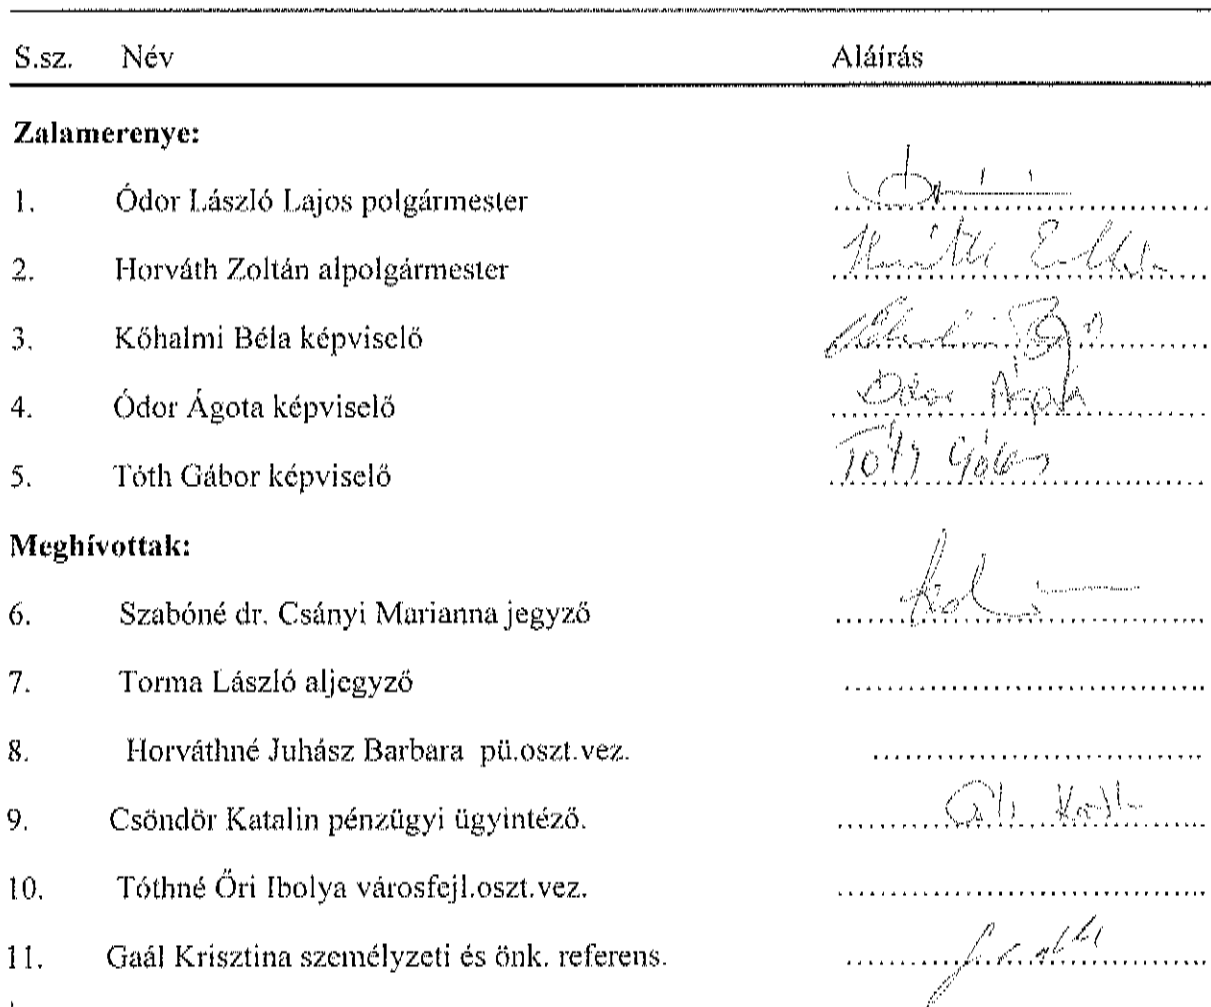 S.sz. Név Aláírás
Zalamerenye:
1. Ódor László Lajos polgármester
2. Horváth Zoltán alpolgármester
3. Kőhalmi Béla képviselő
4. Ódor Ágota képviselő
5. Tóth Gábor képviselő Tóth Gábor
Meghívottak:
6. Szabóné dr. Csányi Marianna jegyző
7. Torma László aljegyző
8. Horváthné Juhász Barbara pü.oszt.vez.
9. Csöndör Katalin pénzügyi ügyintéző.
10. Tóthné Őri Ibolya városfejl.oszt.vez.
11. Gaál Krisztina személyzeti és önk. referens.